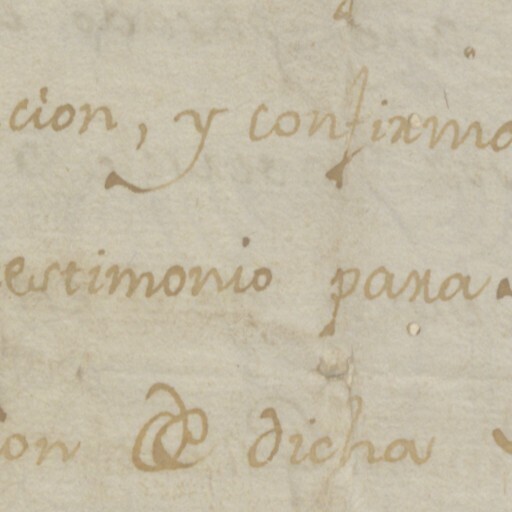 cion, y confirma
estimonio para
on de dicha